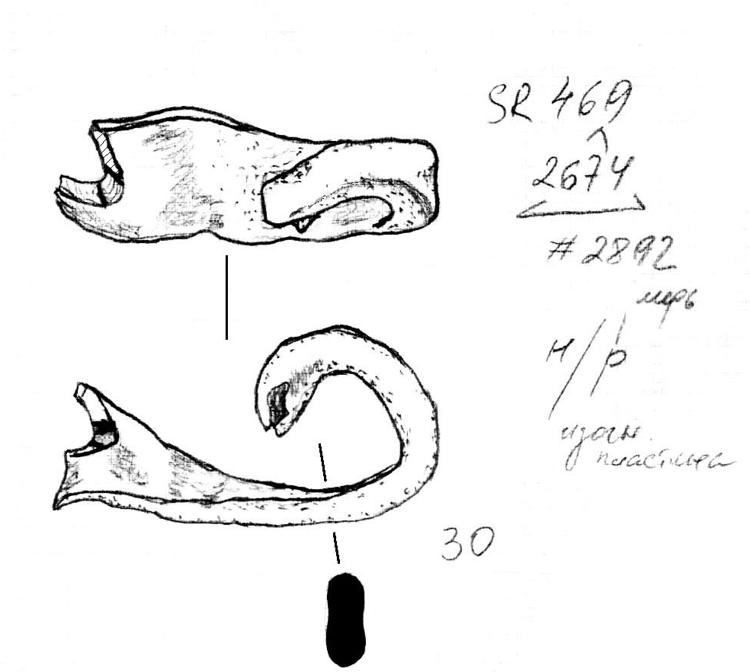 SR 469
2674
# 2892
н/р
изогн.
пластина
30